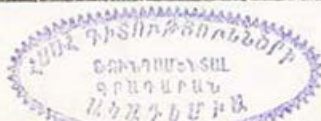 ՀՍՍՀ ԳԻՏՈՒԹՅՈՒՆՆԵՐԻ
ՖՈՒՆԴԱՄԵՆՏԱԼ
ԳՐԱԴԱՐԱՆ
ԱԿԱԴԵՄԻԱ